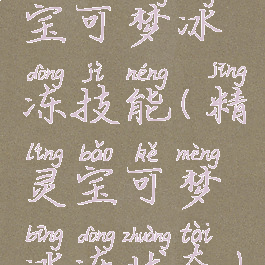 宝可梦冰
dòng jì néng jīng
冻技能(精
líng bǎo kě mèng
灵宝可梦
bīng dòng zhuàng tài